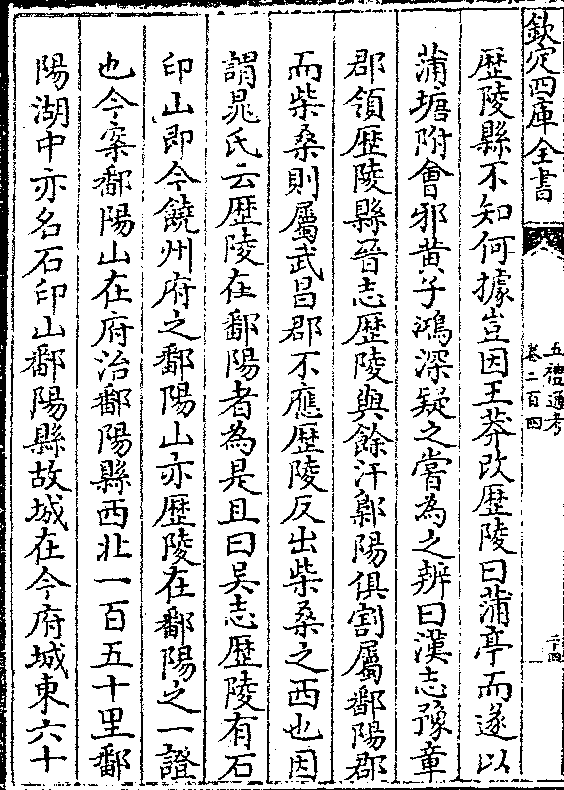 欽定四庫全書
五禮通考
卷二百四
二十四
歴陵縣不知何據豈因王莽改歴陵曰蒲亭而遂以
蒲塘附會邪黄子鴻深疑之嘗為之辨曰漢志豫章
郡領歴陵縣晉志歴陵與餘汗鄡陽俱割屬鄱陽郡
而柴桑則屬武昌郡不應歴陵反出柴桑之西也因
謂晁氏云歴陵在鄱陽者為是且曰吴志歴陵有石
印山即今饒州府之鄱陽山亦歴陵在鄱陽之一證
也今案鄱陽山在府治鄱陽縣西北一百五十里鄱
陽湖中亦名石印山鄱陽縣故城在今府城東六十